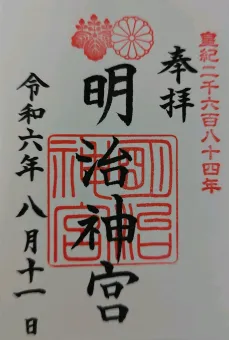 皇紀二千六百八十四年
奉拝
明治神宮
明治神宮
令和六年 八月十一日